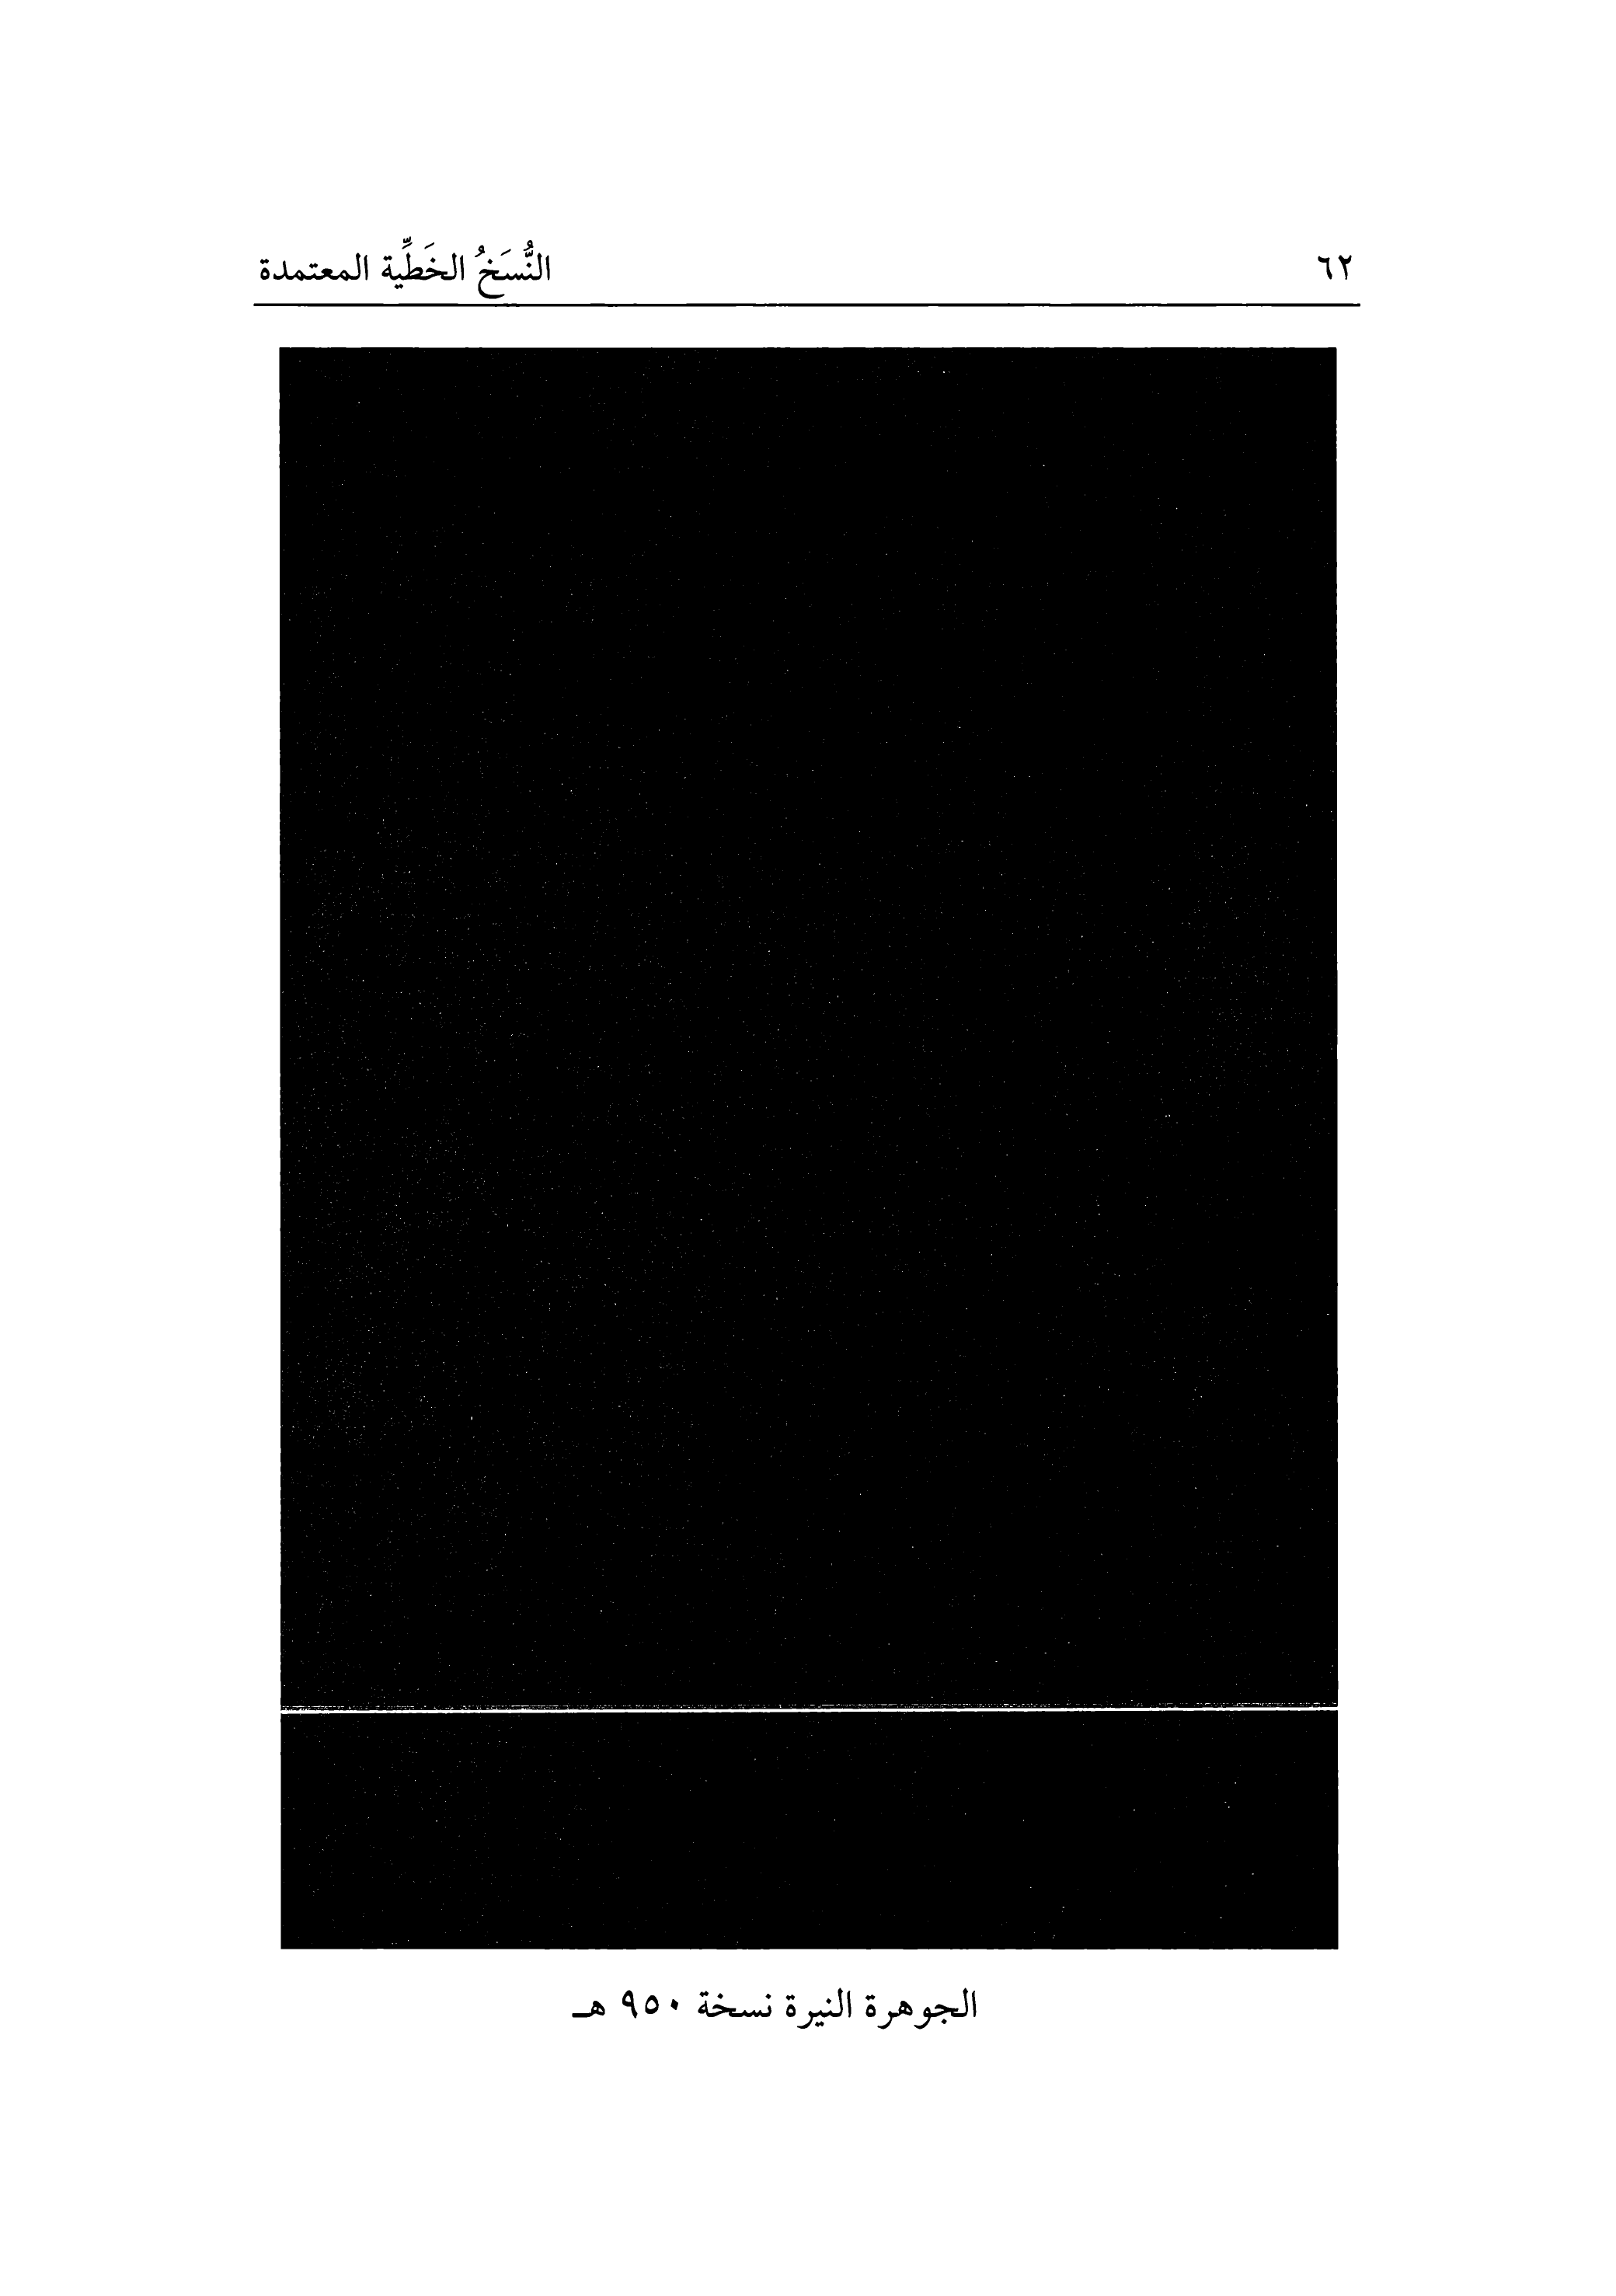 ٦٢
النُّسَخُ الخَطِّية المعتمدة
الجوهرة النيرة نسخة ٩٥٠ هـ